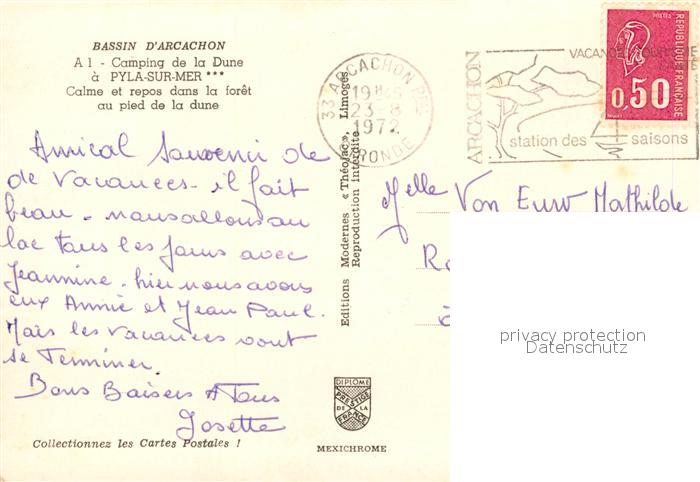 BASSIN D'ARCACHON
A 1 - Camping de la Dune
à PYLA-SUR-MER ***
Calme et repos dans la forêt
au pied de la dune
Amical Souvenir de
de Vacances. il fait
beau. nous allons au
lac tous les jours avec
Jeannine. hier nous avons
eux Annie et Jean Paul.
Mais les Vacances vont
se Terminer.
Bons Baisers A Tous
Josette
Collectionnez les Cartes Postales !
Editions Modernes « Théojac », Limoges
Reproduction interdite
DIPLOME
PRESTIGE
DE LA
FRANCE
MEXICHROME
33 ARCACHON
19H45
23-8
1972
GIRONDE
ARCACHON
VACANCES
station des saisons
REPUBLIQUE FRANÇAISE
0,50
Melle Von Euw Mathilde
privacy protection
Datenschutz